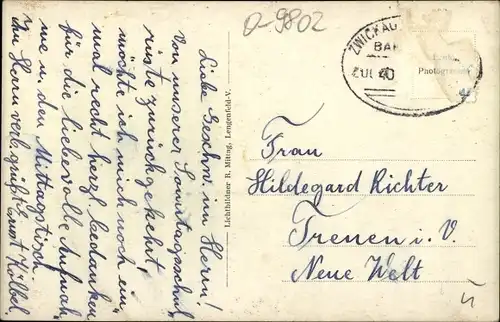 O-9802
ZWICKAU
BAH
Photographie
Liebe Geschw. im Herrn!
Von unserer Sonntagsschul
rüste zurückgekehrt,
möchte ich mich noch ein-
mal recht herzl. bedanken
für die liebevolle Aufnah
me u. den Mittagstisch.
Im Herrn verb. grüßt Euer Kölbel.
Lichtbildner R. Mittag, Lengenfeld-V.
Frau
Hildegard Richter
Treuen i. V.
Neue Welt